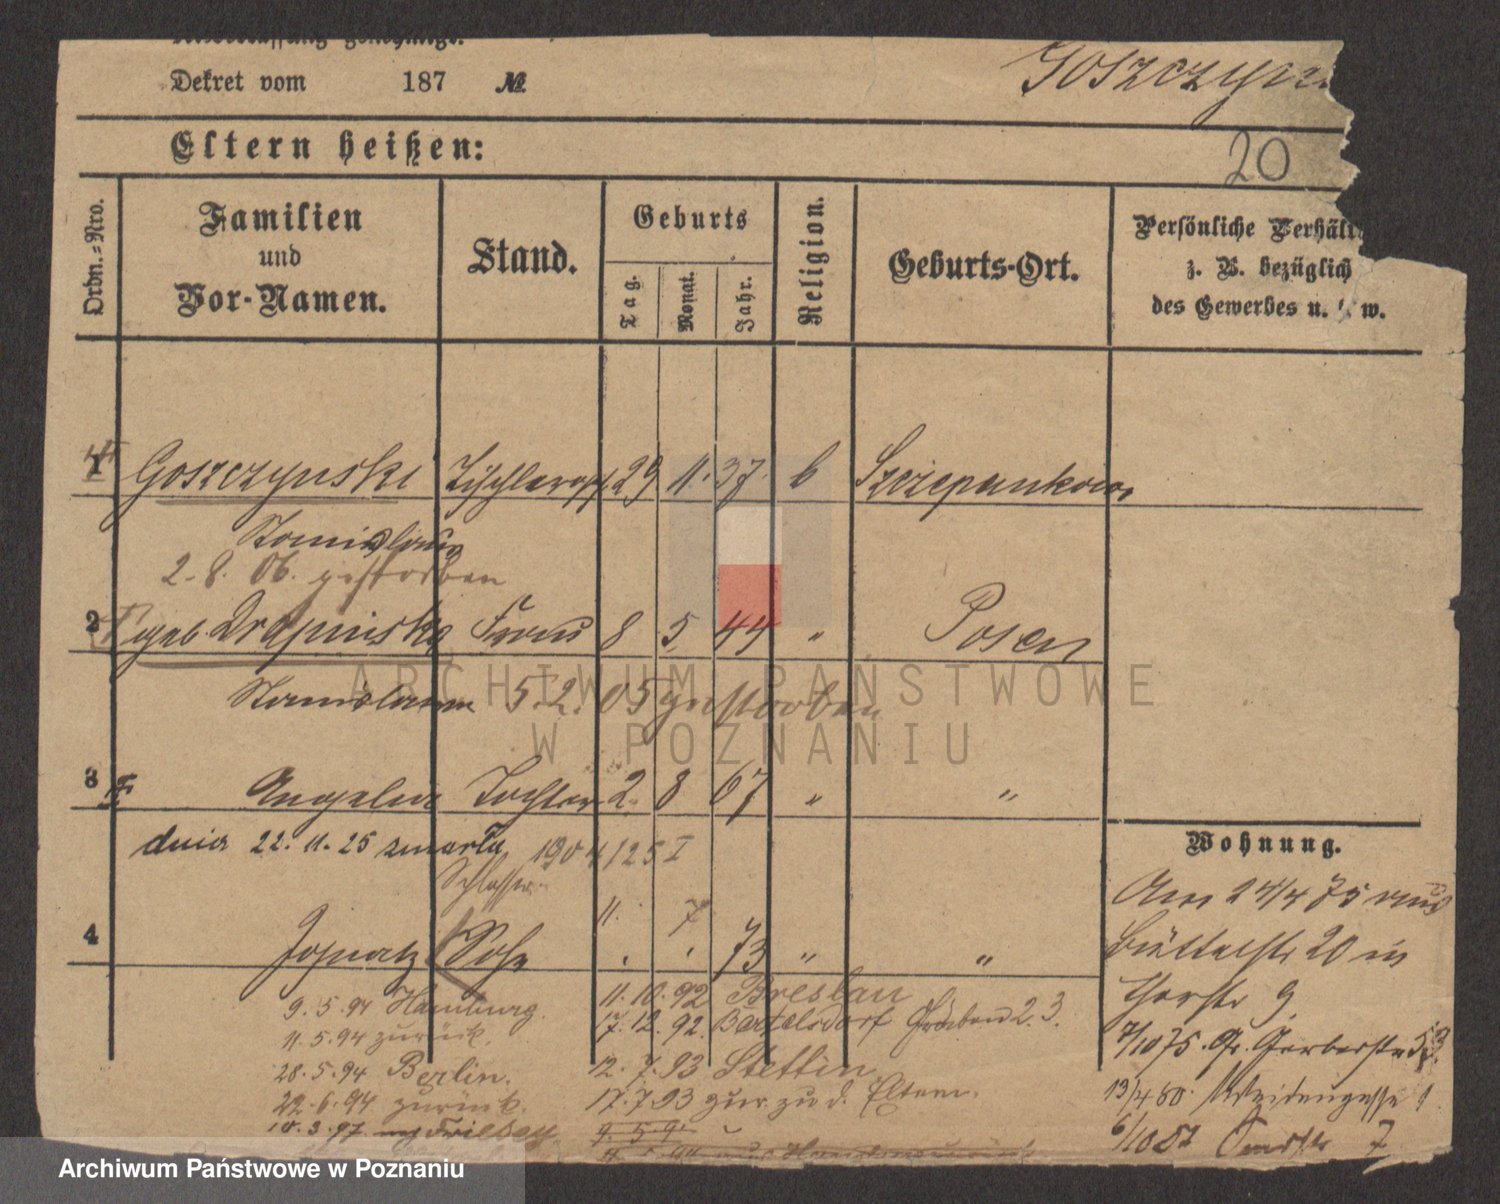 Dekret vom 187 №
Goszczyn
Eltern heißen:
20
Ordn.-Nro.
Familien
und
Vor-Namen.
Stand.
Geburts
Tag.
Monat.
Jahr.
Religion.
Geburts-Ort.
Persönliche Verhält
z. B. bezüglich
des Gewerbes u. w.
1 Goszczynski 29 11. 37. Szczepankowo
Stanislaus
2. 8. 06. gestorben
2 geb. Drapinska Frau 8 5 44 " Posen
Stanislawa 5. 2. 05 gestorben
3 Angelica Tochter 2. 8 67 " "
dnia 22. 11. 25 zmarła 1904/25 I
Schlosser
11. 7
4 Ignatz Sohn 73 " "
Wohnung.
Am 24/4 75 aus
Büttelstr 20 in
Thorstr 9
7/10 75. Gr. Gerberstr
13/4 80.
6/10 7
9. 5. 94 Hamburg.
11. 5. 94 zurück.
28. 5. 94 Berlin.
22. 6. 94 zurück.
10. 3. 97
11. 10. 92 Breslau
17. 12. 92. Bartelsdorf 2. 3.
12. 7. 93 Stettin
17. 7 93 zur. zu d. Eltern.
ARCHIWUM PAŃSTWOWE
W POZNANIU
Archiwum Państwowe w Poznaniu